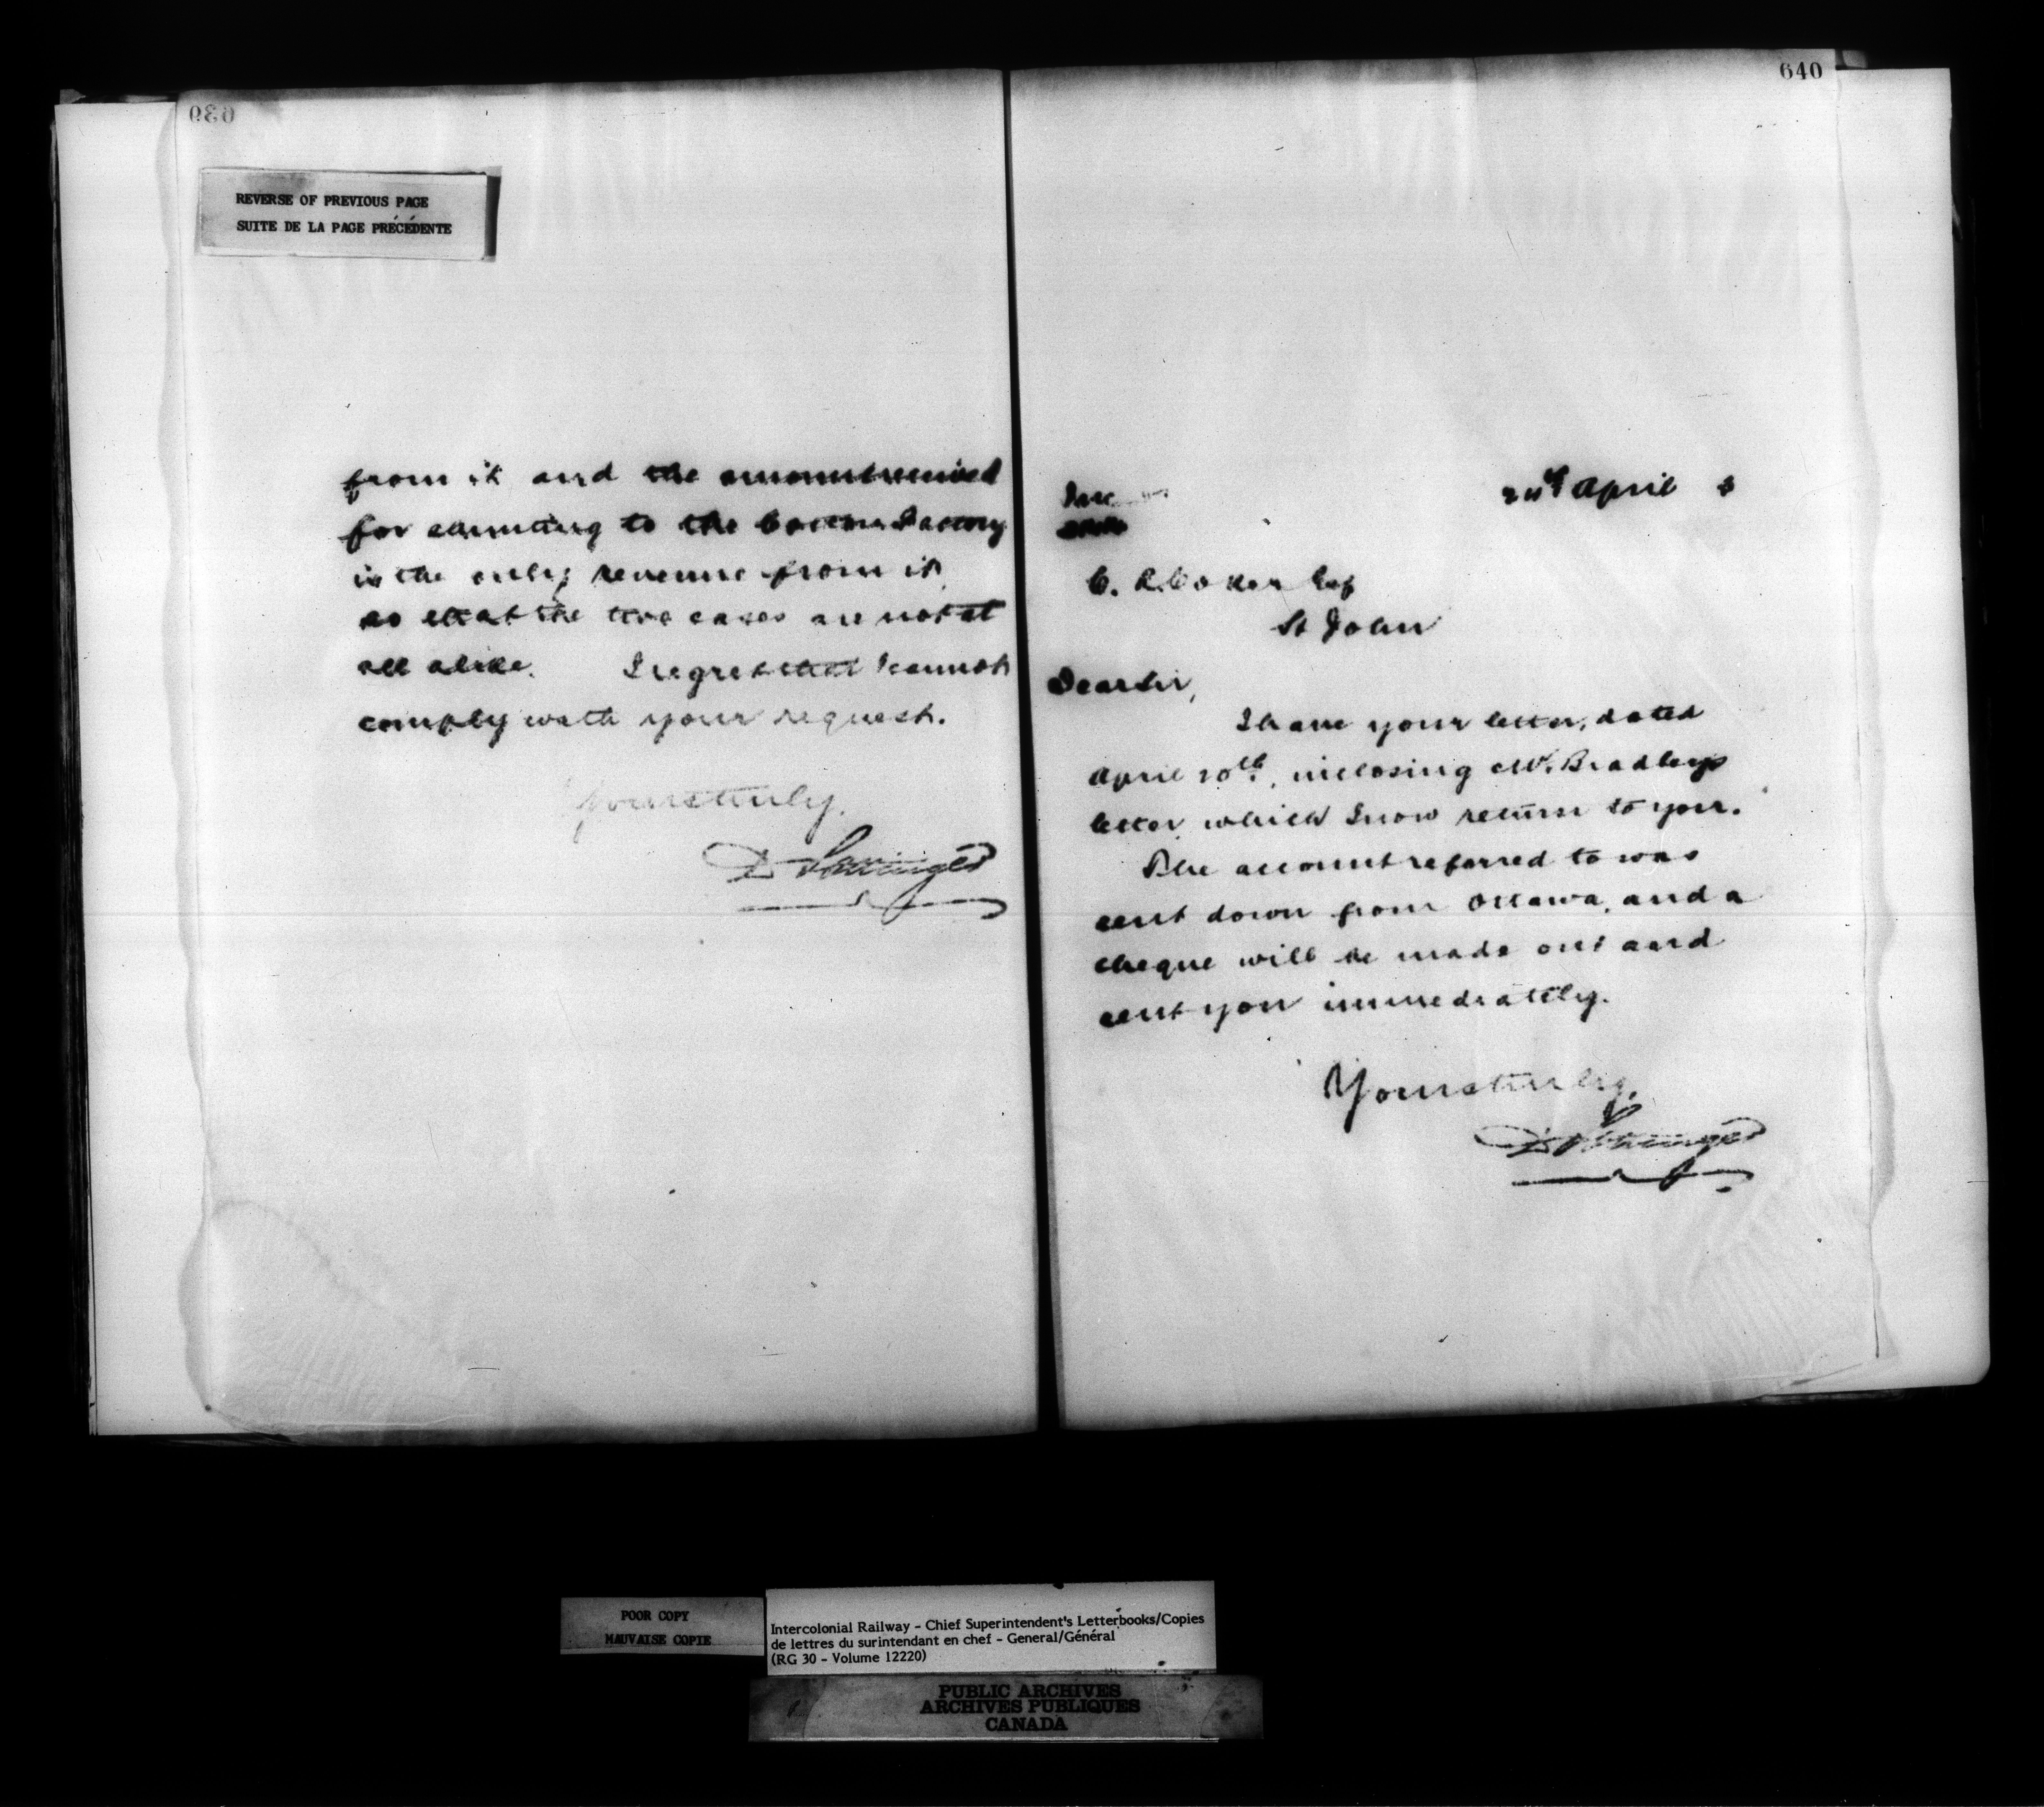 639
REVERSE OF PREVIOUS PAGE
SUITE DE LA PAGE PRÉCÉDENTE
from it and the amount received
for shunting to the Cotton Factory
is the only revenue from it
so that the two cases are not at
all alike. I regret that I cannot
comply with your request.
Yours truly.
D Pottinger
640
24th April
C. R. Coker Esq
St John
Dear Sir,
I have your letter, dated
April 20th, inclosing Mr. Bradley's
letter which I now return to you.
The account referred to was
sent down from Ottawa, and a
cheque will be made out and
sent you immediately.
Yours truly,
D Pottinger
POOR COPY
MAUVAISE COPIE
Intercolonial Railway - Chief Superintendent's Letterbooks/Copies
de lettres du surintendant en chef - General/Général
(RG 30 - Volume 12220)
PUBLIC ARCHIVES
ARCHIVES PUBLIQUES
CANADA